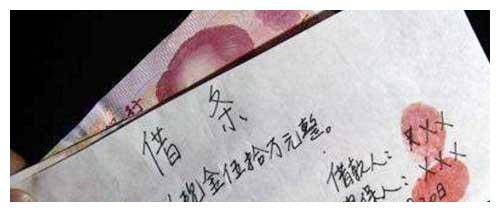 借条
现金伍拾万元整。
借款人：XXX
担保人：XXX
20日